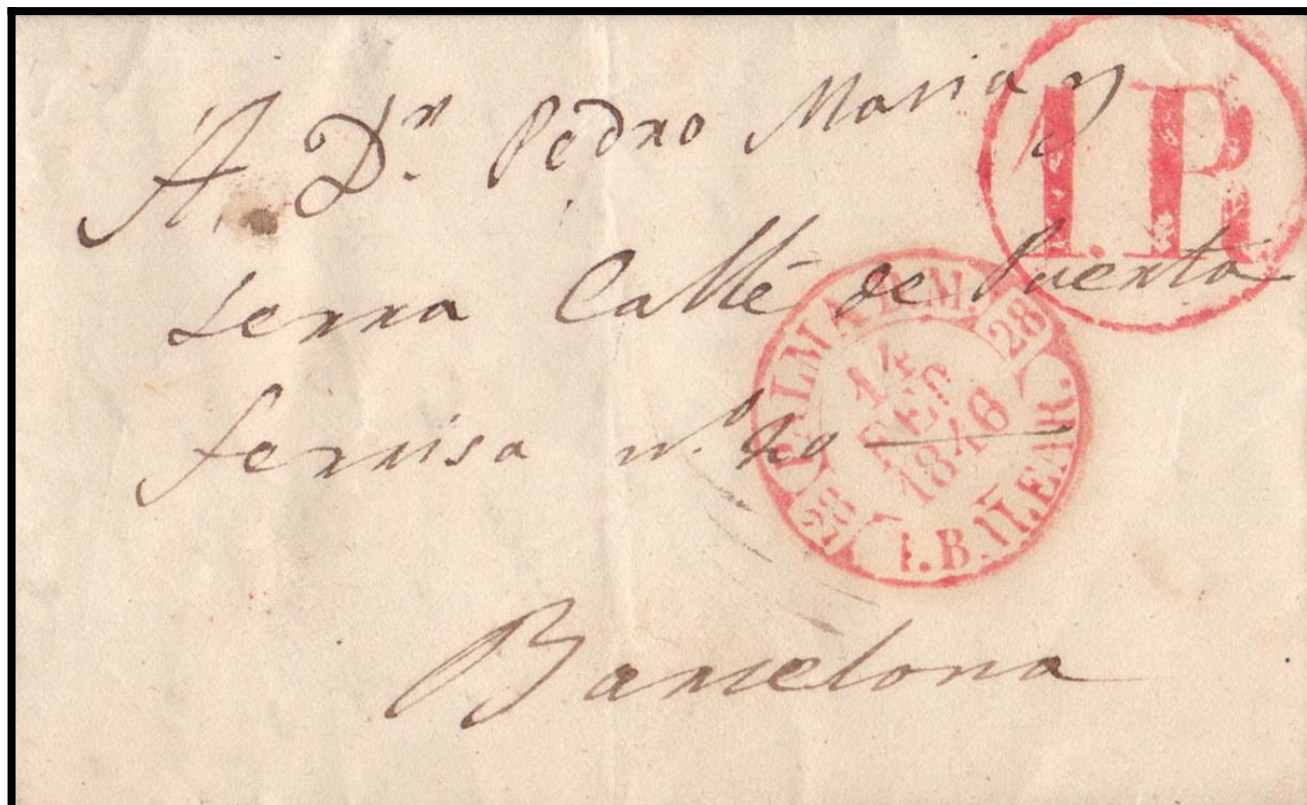 A. Dn. Pedro Maria y
Serra Calle de Puerta
ferrisa n.º 20
Barcelona
1.R
PALMA D M.
28
14
FEB
1846
28
I. BALEAR.